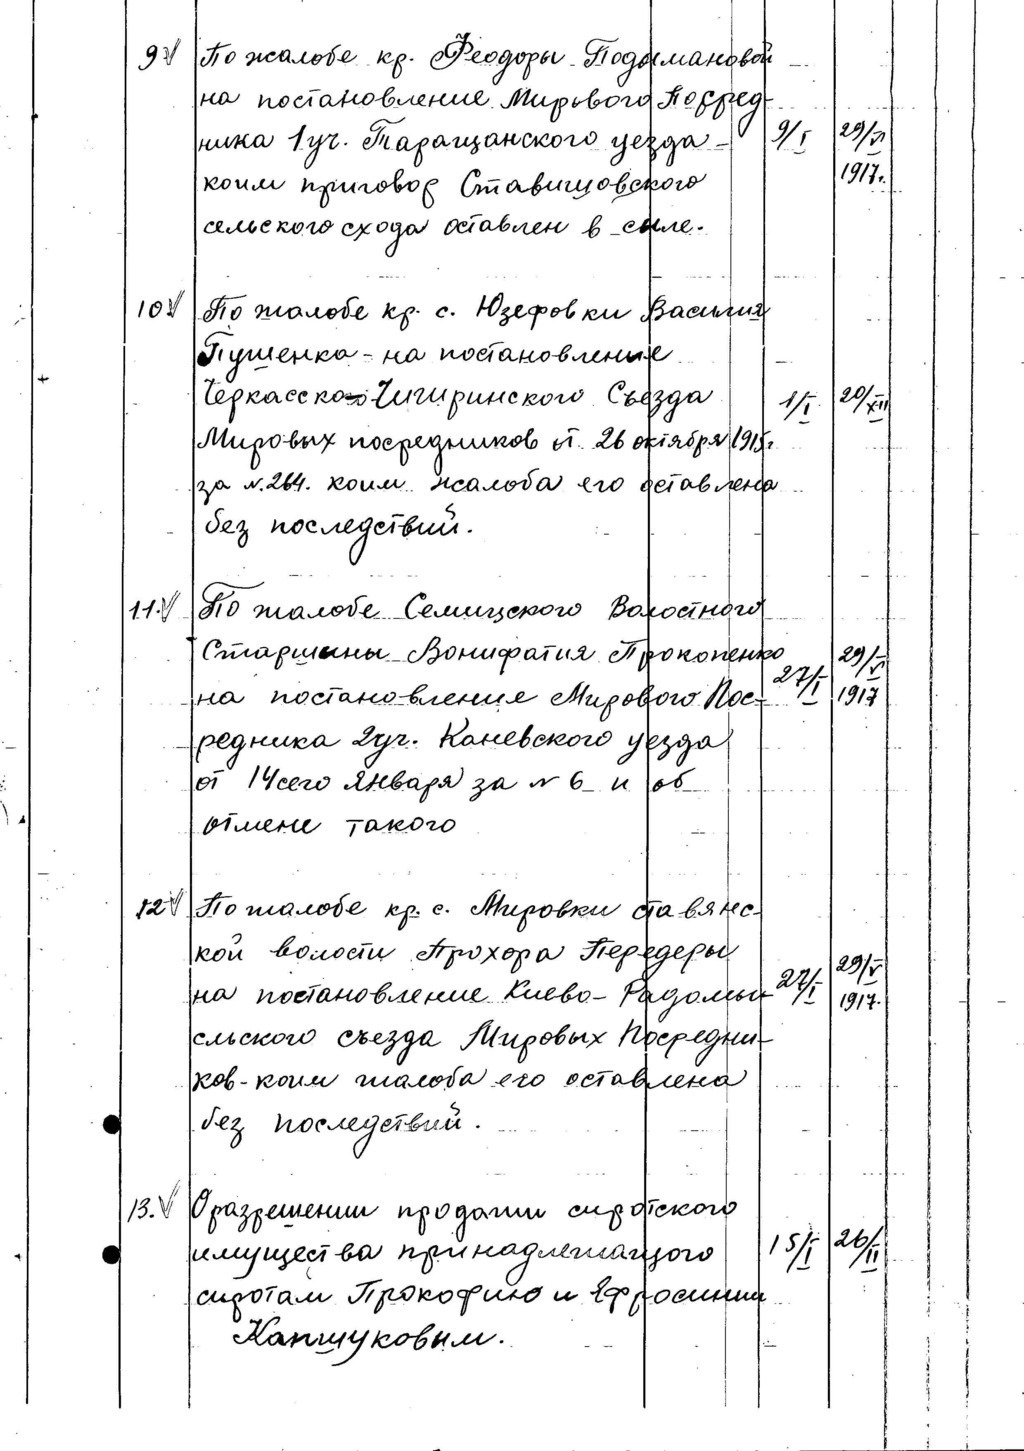 9. По жалобе кр. Феодоры Подымановой
на постановление Мирового Посред-
ника 1 уч. Таращанского уезда - 9/I 29/VI
коим приговор Ставищовского 1917.
сельского схода оставлен в силе.
10 По жалобе кр. с. Юзефовки Василия
Пушенка - на постановление
Черкасско-Чигиринского Съезда 1/I 20/XII
Мировых посредников от 26 октября 1915г
за N.264. коим жалоба его оставлена
без последствий.
11. По жалобе Семищского Волостного
Старшины Вонифатия Прокопенко 27/I 29/V
на постановление Мирового Пос- 1917
редника 2 уч. Каневского уезда
от 14 сего Января за N 6 и об
отмене такого
12 По жалобе кр. с. Мировки ставянс-
кой волости Прохора Передеры 29/V
на постановление Киево-Радомы- 27/I 1917.
сльского съезда Мировых Посредни-
ков - коим жалоба его оставлена
без последствий.
13. О разрешении продажи сиротского
имущества принадлежащого 15/I 26/II
сиротам Прокофию и Ефросинии
Капшуковым.